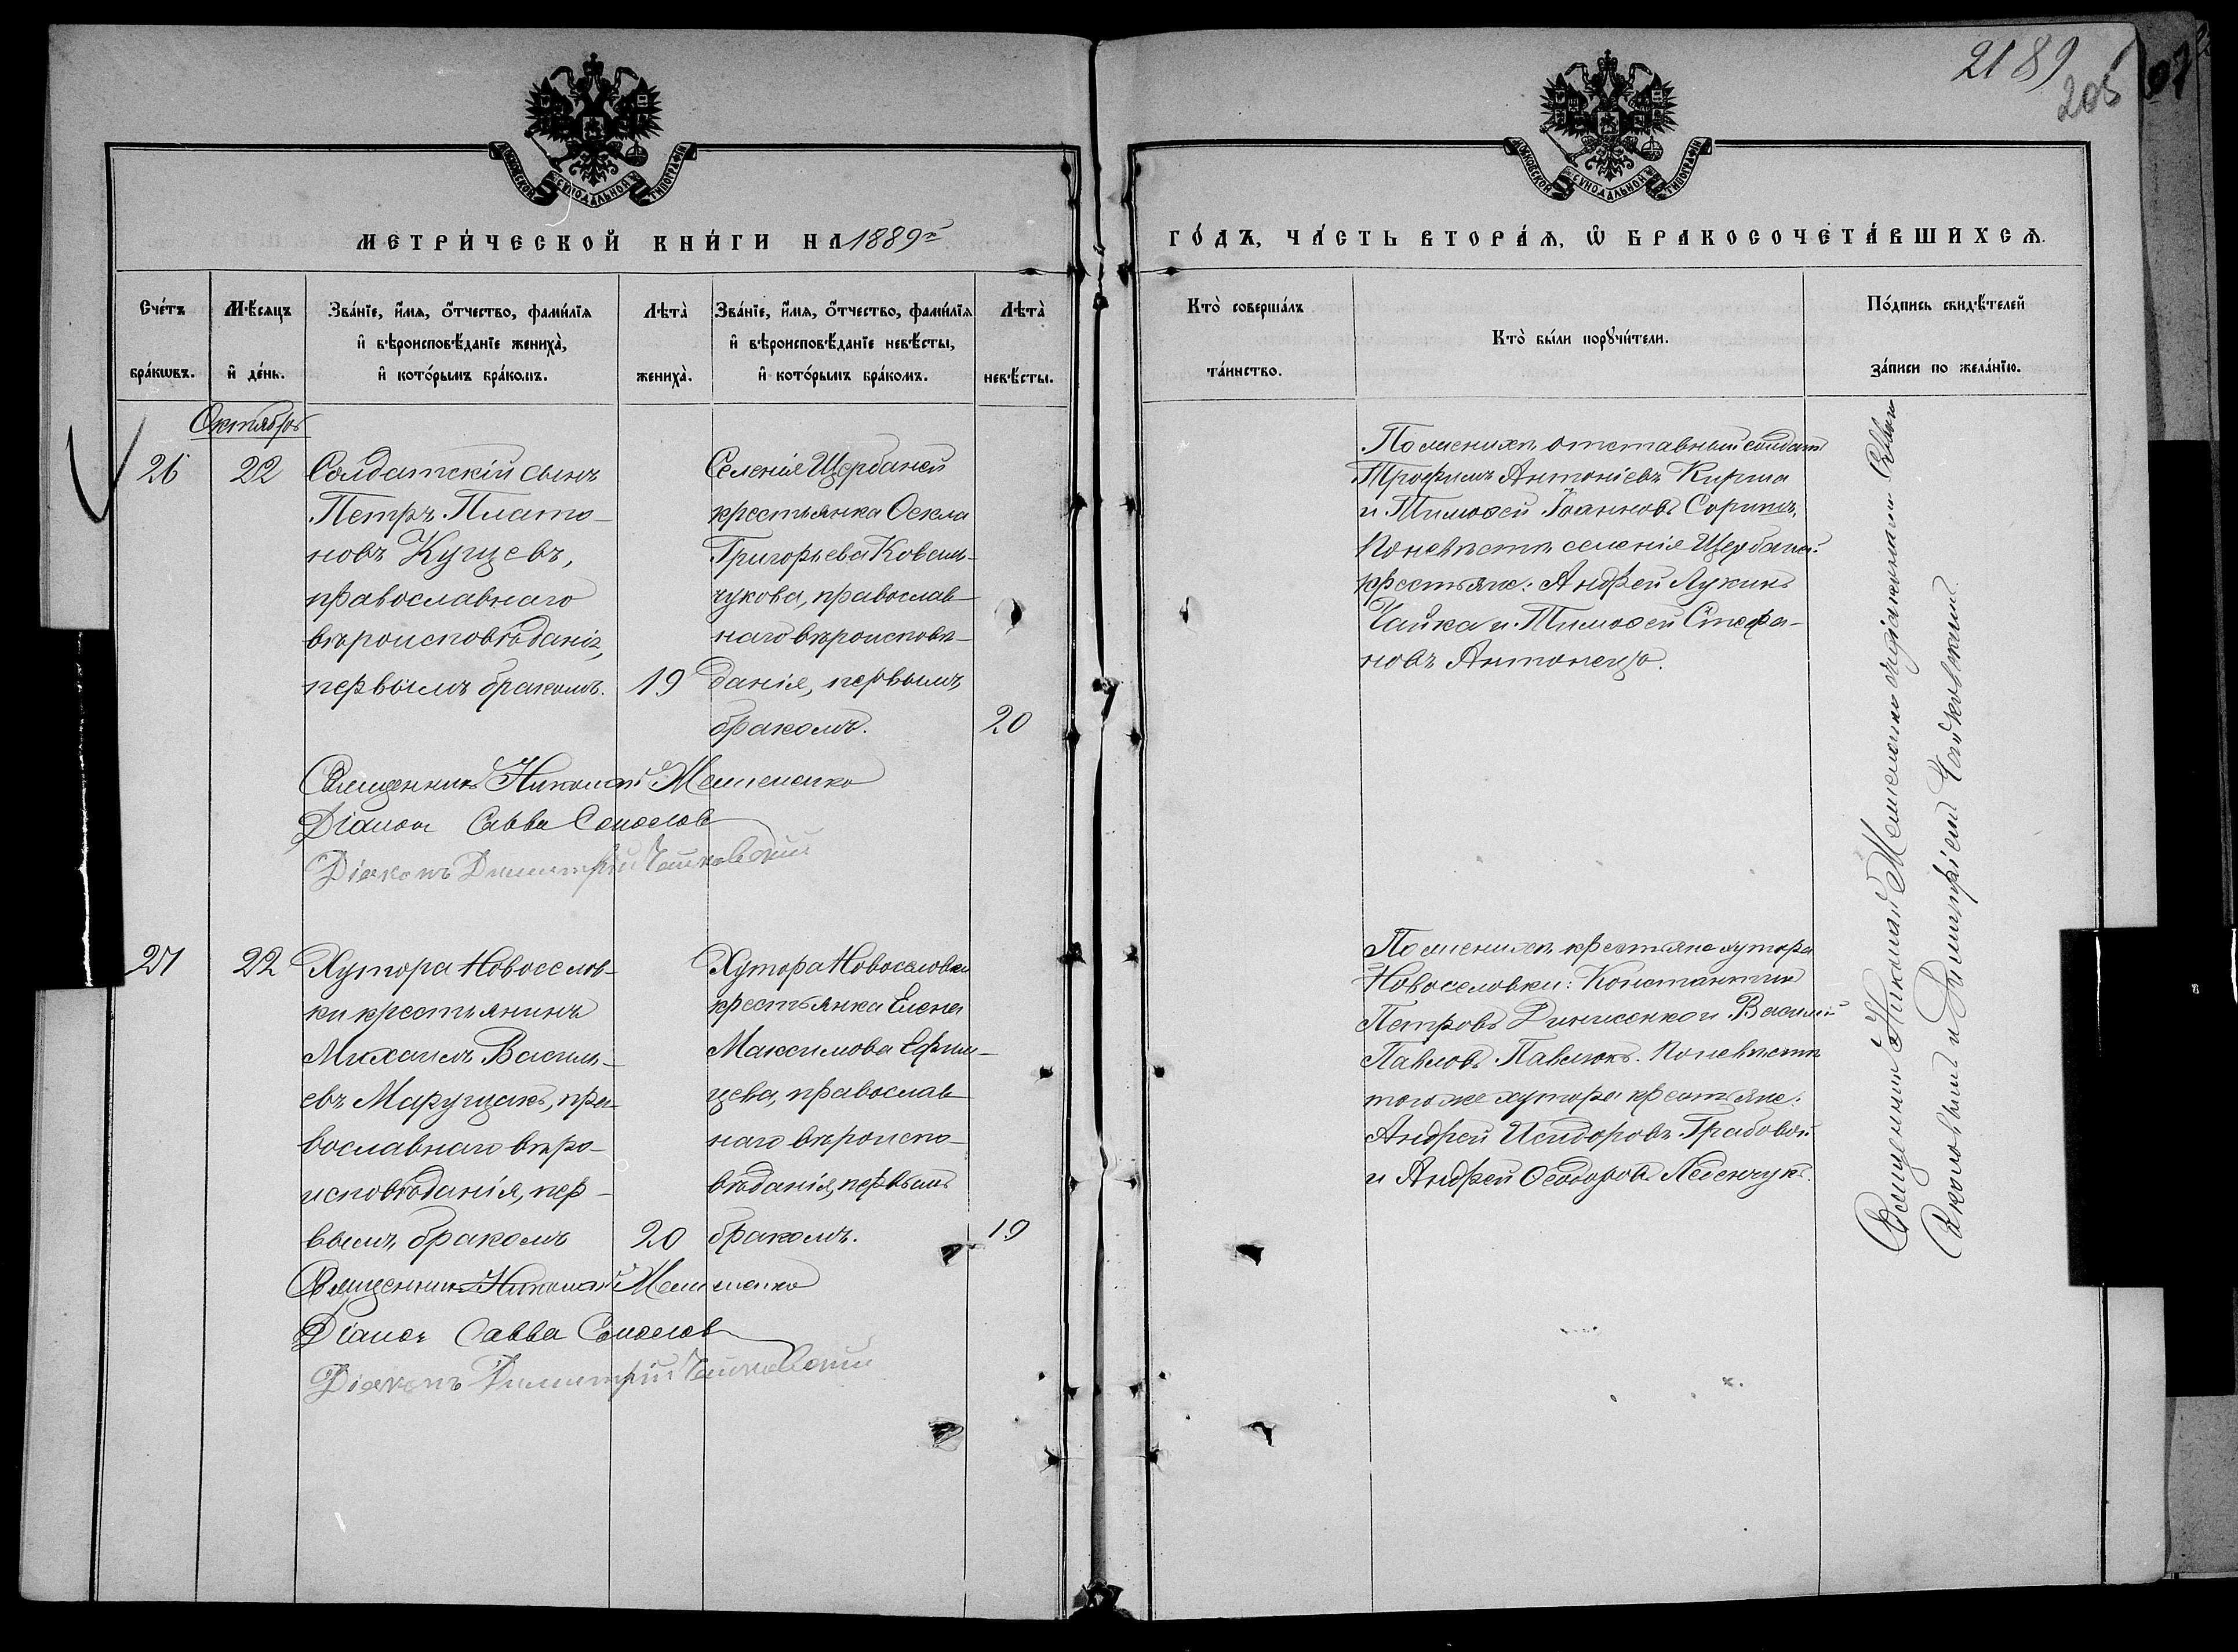 2189
205
МОСКОВСКОЙ СѴНОДАЛЬНОЙ ТИПОГРАФІИ
МОСКОВСКОЙ СѴНОДАЛЬНОЙ ТИПОГРАФІИ
МЕТРИ́ЧЕСКОЙ КНИ́ГИ НА 1889й
ГО́ДЪ, ЧА́СТЬ ВТОРА́Ѧ, Ѡ҆ БРАКОСОЧЕТА́ВШИХСѦ.
Сче́тъ бра́кѡвъ.
Мѣ́сѧцъ и҆ де́нь.
Зва́нїе, и҆́мѧ, ѻ҆́тчество, фами́лїѧ
и҆ вѣроисповѣ́данїе жениха̀,
и҆ кото́рымъ бра́комъ.
Лѣта̀ жениха̀.
Зва́нїе, и҆́мѧ, ѻ҆́тчество, фами́лїѧ
и҆ вѣроисповѣ́данїе невѣ́сты,
и҆ кото́рымъ бра́комъ.
Лѣта̀ невѣ́сты.
Кто̀ соверша́лъ
та́инство.
Кто̀ бы́ли порꙋчи́тели.
По́дпись свидѣ́телей
за́писи по жела́нїю.
Октябрь
26
22
Солдатскій сынъ
Петръ Плато-
новъ Кущевъ,
православнаго
вѣроисповѣданія,
первымъ бракомъ.
19
Селенія Щербаней
крестьянка Ѳекла
Григорьева Коваль-
чукова, православ-
наго вѣроисповѣ-
данія, первымъ
бракомъ.
20
Священникъ Николай
Діаконъ Савва Соколовъ
Діаконъ Димитрій Чайковскій
По женихѣ отставный солдатъ
Трофимъ Антоніевъ Кирша
и Тимоѳей Іоанновъ
По невѣстѣ селенія Щербаней
крестьяне: Андрей Лукинъ
Чайка и Тимоѳей Стефа-
новъ Антонецъ.
27
22
Хутора Новоселов-
ки крестьянинъ
Михаилъ Василь-
евъ Марущакъ, пра-
вославнаго вѣро-
исповѣданія, пер-
вымъ бракомъ
20
Хутора Новоселовки
крестьянка Елена
Максимова Ефим-
цева, православ-
наго вѣроиспо-
вѣданія, первымъ
бракомъ.
19
Священникъ Николай
Діаконъ Савва Соколовъ
Діаконъ Димитрій Чайковскій
По женихѣ крестьяне хутора
Новоселовки: Константинъ
Петровъ и Василій
Павловъ Павлюкъ. По невѣстѣ
того же хутора крестьяне:
Андрей Исидоровъ Грабовой
и Андрей Ѳеодоровъ
Священникъ Николай съ діаконами Саввою
Соколовымъ и Димитріемъ Чайковскимъ.